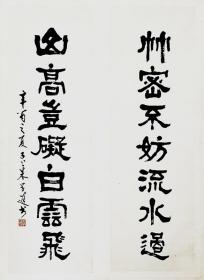 竹密不妨流水過
山高豈礙白雲飛
辛酉之夏